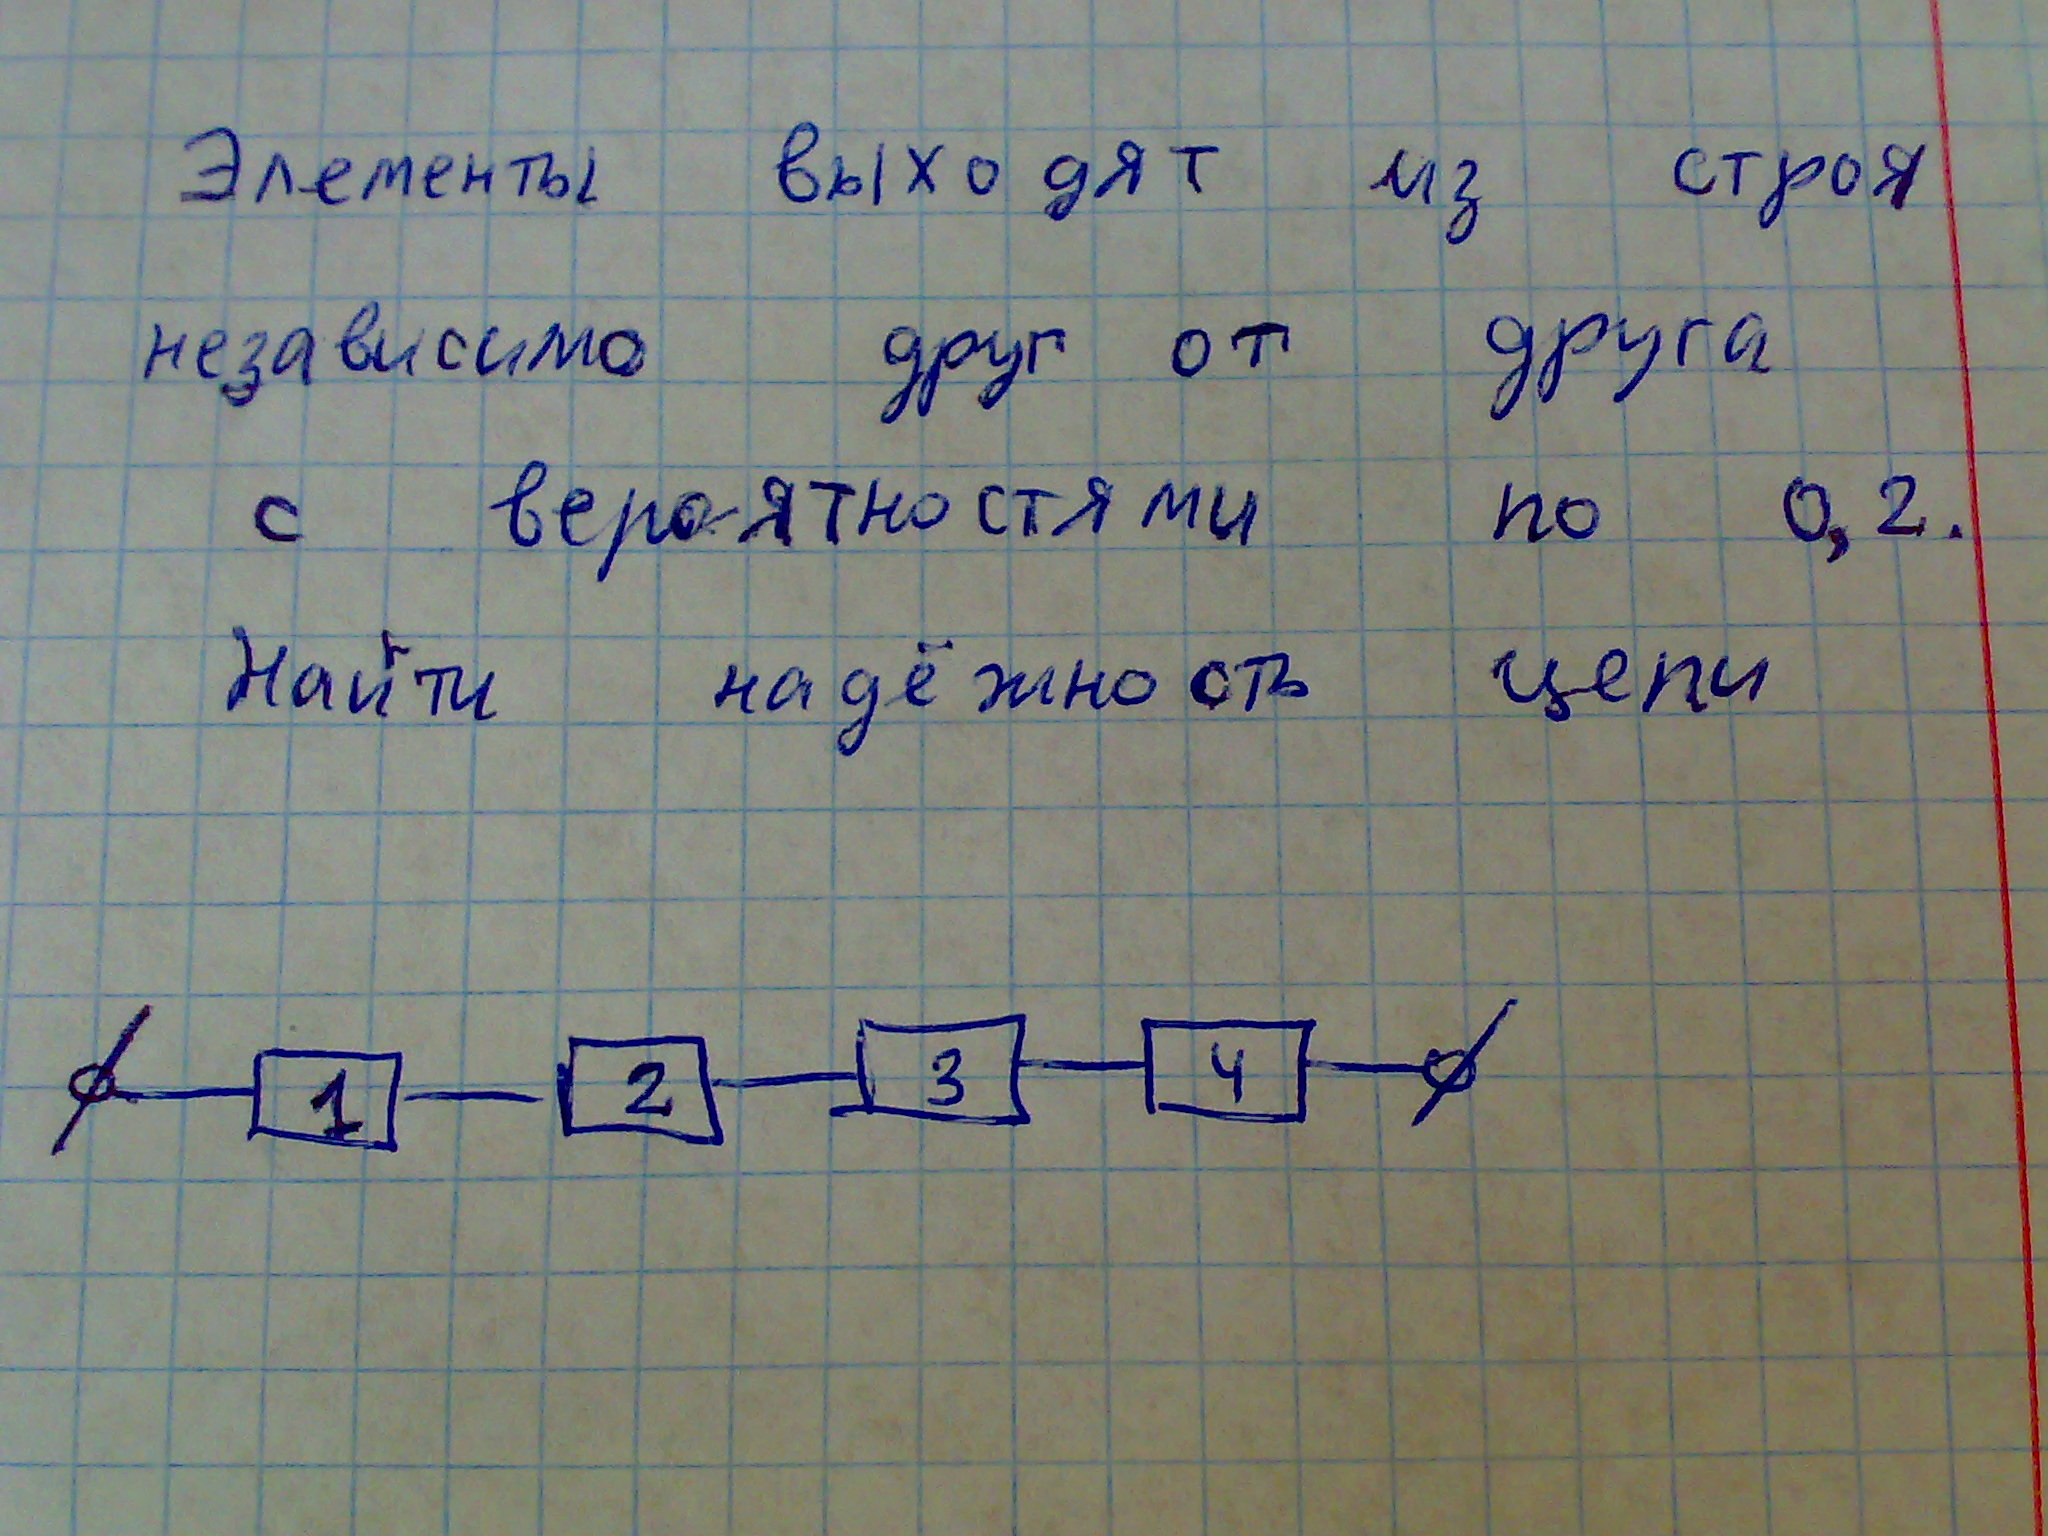 Элементы выходят из строя
независимо друг от друга
с вероятностями по 0,2.
Найти надёжность цепи
1 2 3 4